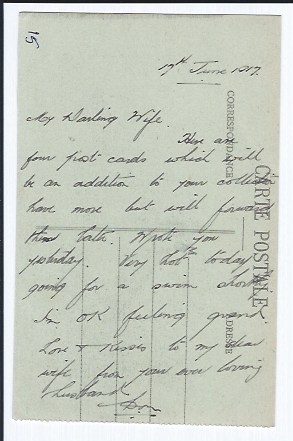 15
17th June 1917.
My Darling Wife.
Here are
four post cards which will
be an addition to your collection
have more but will forward
them later. Wrote you
yesterday. Very hot today
going for a swim shortly
Im OK feeling grand.
Love & Kisses to my dear
wife from your ever loving
husband
CARTE POSTALE
CORRESPONDANCE
ADRESSE